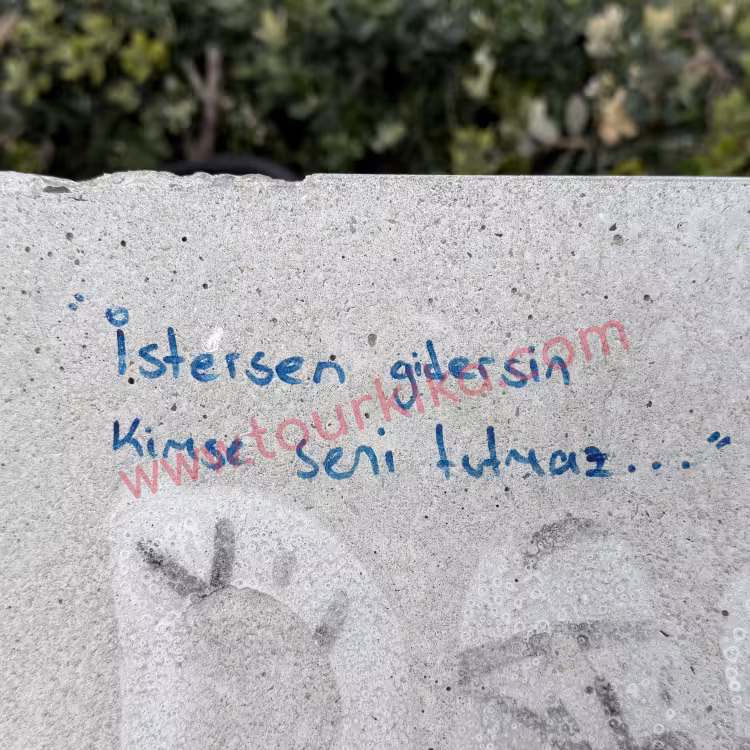 "İstersen gidersin
Kimse seni tutmaz..."
www.tourkika.com